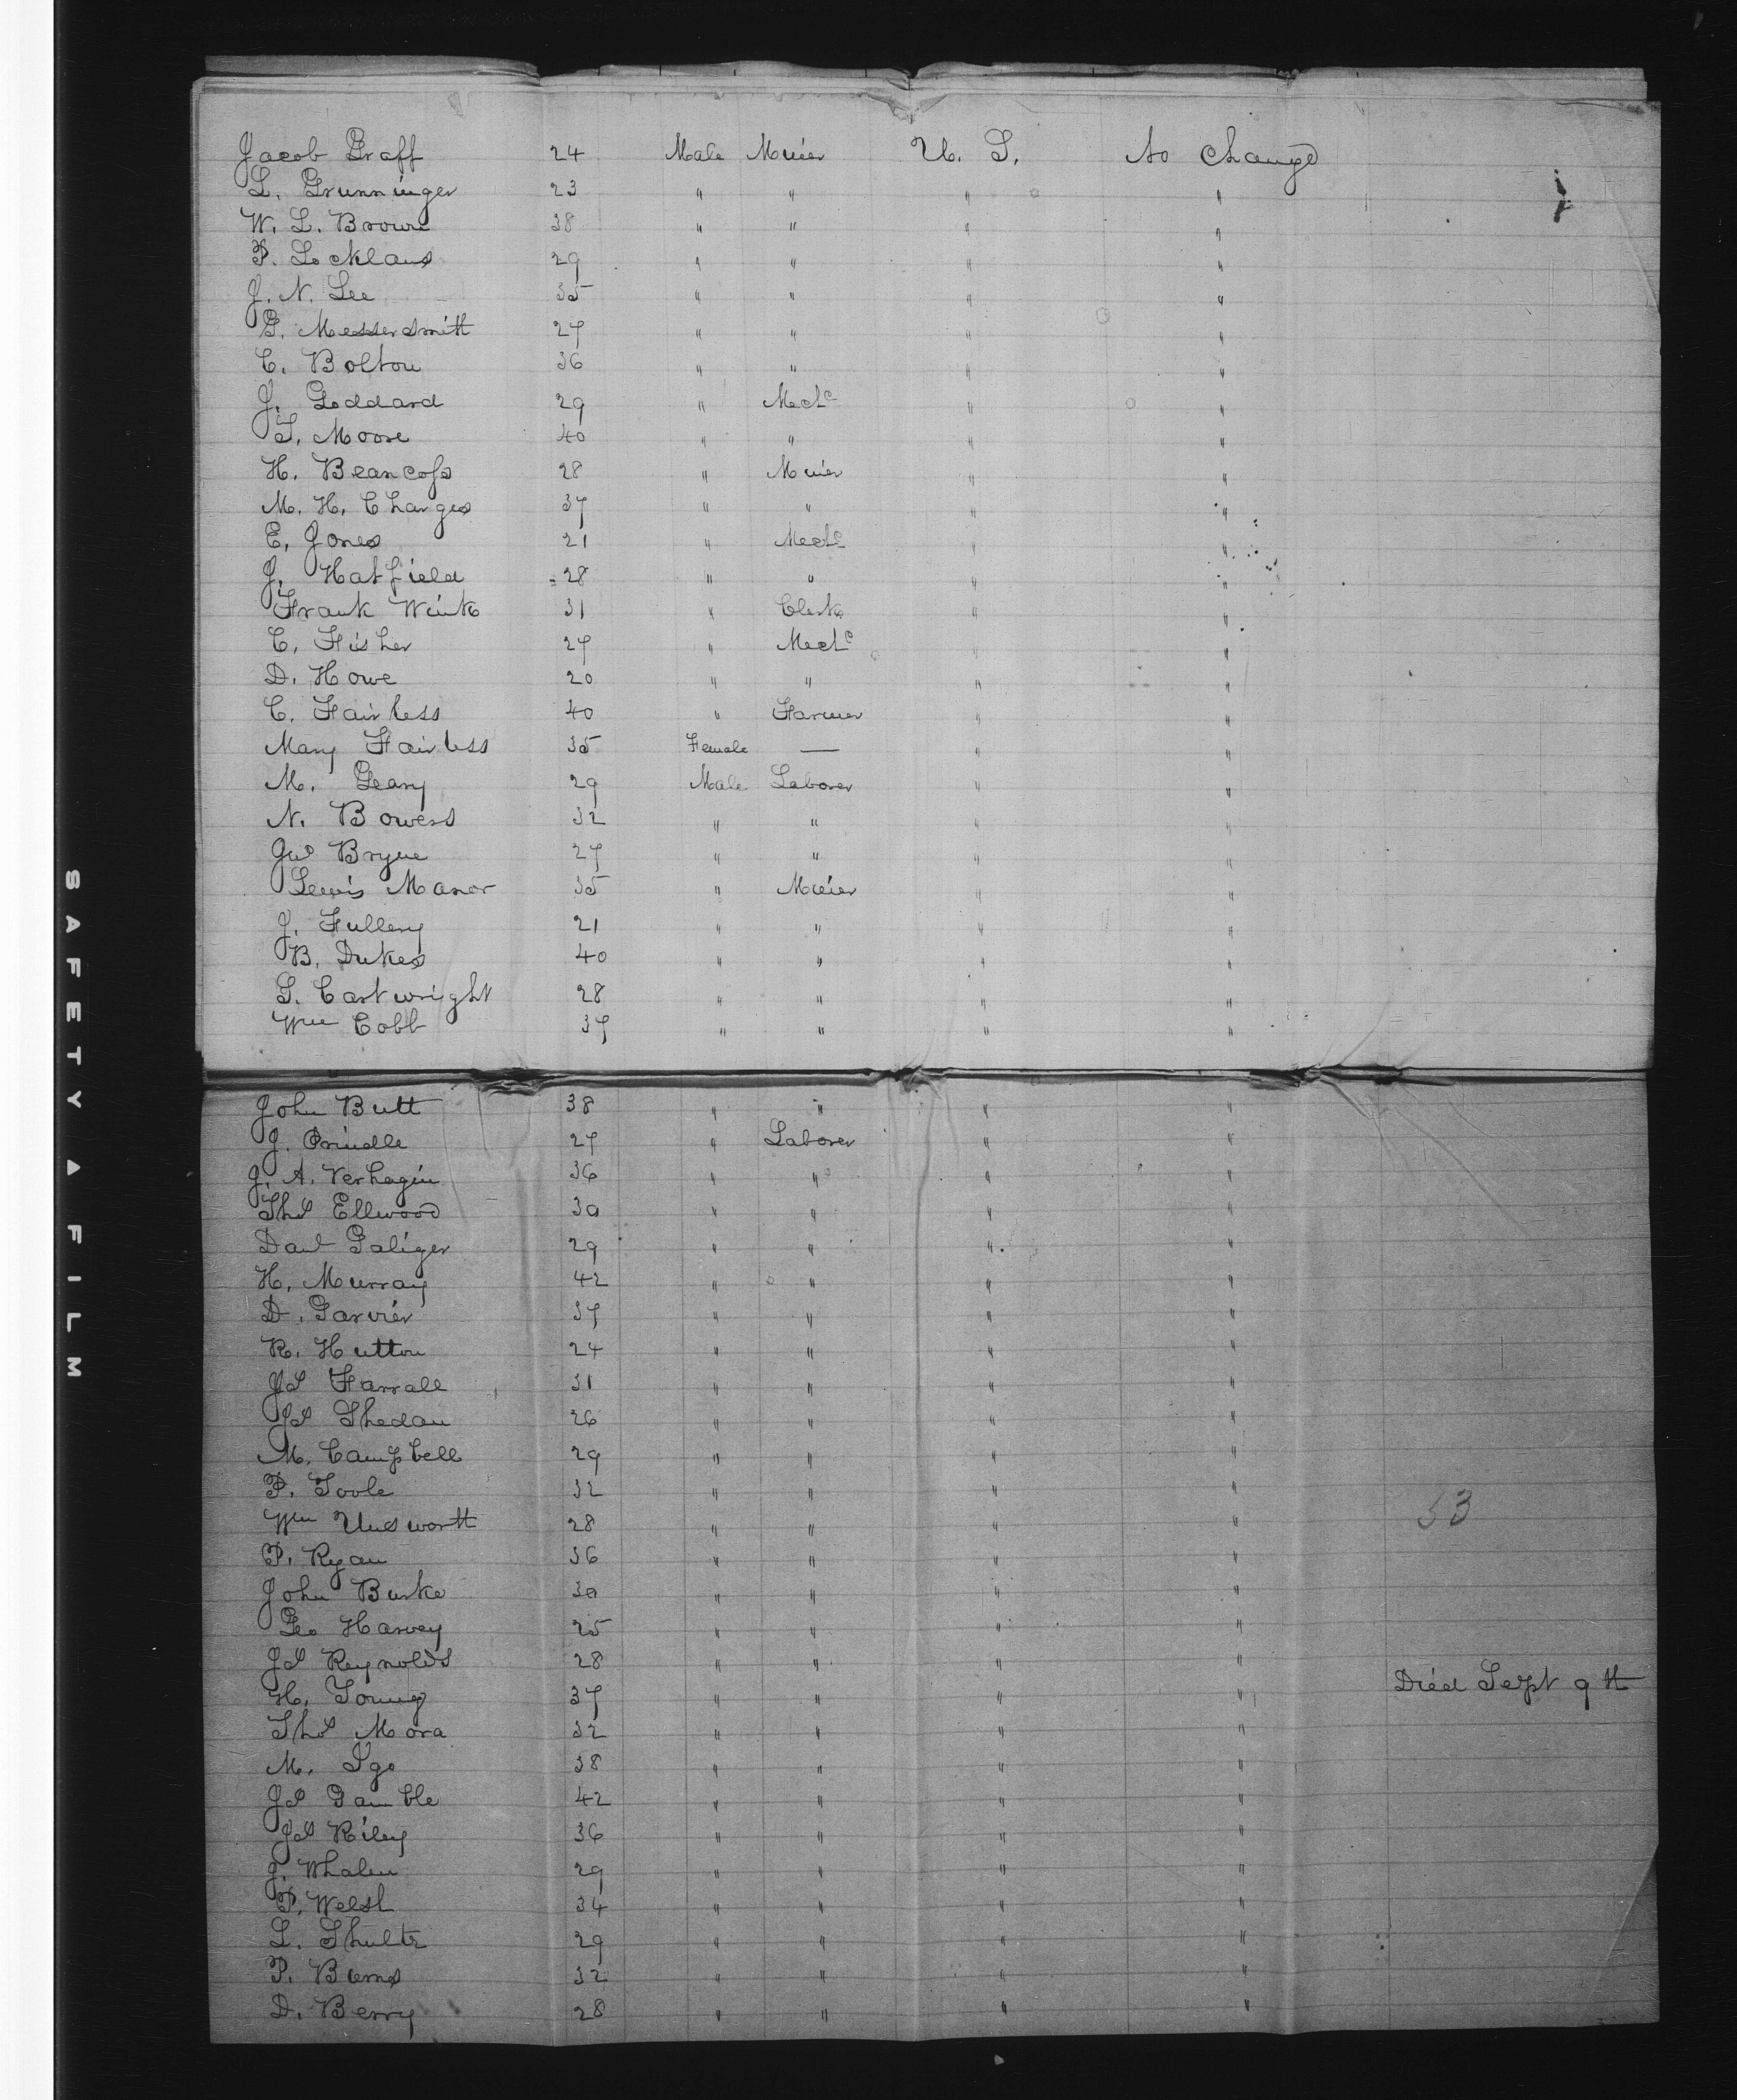 Jacob Graff 24 Male Miner U. S. No Change
L. Grunninger 23 " " " "
W. L. Brown 38 " " " "
P. Locklans 29 " " " "
J. N. Lee 35 " " " "
G. Messersmith 27 " " " "
C. Bolton 36 " " " "
J. Goddard 29 " Mechc " "
T. Moore 40 " " " "
H. Beancoss 28 " Miner " "
M. H. Charges 37 " " " "
E. Jones 21 " Mechc " "
J. Hatfield 28 " " " "
Frank Wink 31 " Clerk " "
C. Fisher 27 " Mechc " "
D. Howe 20 " " " "
C. Fairless 40 " Farmer " "
Mary Fairless 35 Female — " "
M. Geary 29 Male Laborer " "
N. Bowers 32 " " " "
Jno Bryne 27 " " " "
Lewis Manor 35 " Miner " "
J. Fullery 21 " " " "
B. Dukes 40 " " " "
G. Cartwright 28 " " " "
Wm Cobb 37 " " " "
John Butt 38 " " " "
J. Prindle 27 " Laborer " "
J. A. Verhagin 36 " " " "
Thos Ellwood 30 " " " "
Danl Galiger 29 " " " "
H. Murray 42 " " " "
D. Garvier 37 " " " "
R. Hutton 24 " " " "
Js Farrall 31 " " " "
Js Shedan 26 " " " "
M. Campbell 29 " " " "
P. Toole 32 " " " "
Wm Unsworth 28 " " " " 53
P. Ryan 36 " " " "
John Burke 30 " " " "
Geo Harvey 25 " " " "
Js Reynolds 28 " " " "
H. Young 37 " " " " Died Sept 9th
Thos Mora 32 " " " "
M. Igo 38 " " " "
Js Gamble 42 " " " "
Js Riley 36 " " " "
J. Whalen 29 " " " "
P. Welsh 34 " " " "
L. Shultz 29 " " " "
P. Burns 32 " " " "
D. Berry 28 " " " "
SAFETY A FILM